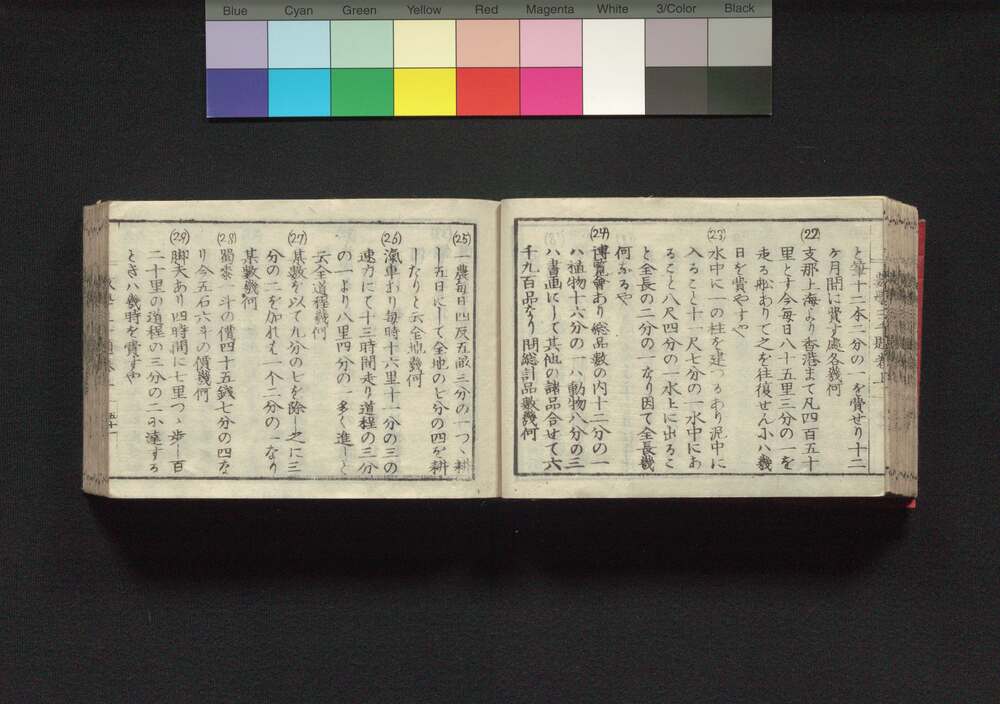 Blue Cyan Green Yellow Red Magenta White 3/Color Black
と筆十二本二分の一を費せり十二
ケ月間に費す處各幾何
(22)
支那上海より香港まて凡四百五十
里とす今毎日八十五里三分の一を
走る船ありて之を往復せんにハ幾
日を費やすや
(23)
水中に一の柱を建つるあり泥中に
入ること十一尺七分の一水中にあ
ること八尺四分の一水上に出るこ
と全長の二分の一なり因て全長幾
何なるや
(24)
博覧會あり総品数の内十二分の一
ハ植物十六分の一ハ動物八分の三
ハ書画にして其他の諸品合せて六
千九百品なり問総計品數幾何
(25)
一農毎日四反五畝三分の一つヽ耕
し五日にして全地の七分の四を耕
しなりと云全地幾何
(26)
滊車あり毎時十六里十一分の三の
速力にて十三時間走り道程の三分
の一より八里四分の一多く進しと
云全道程幾何
(27)
某數を以て九分の七を除し之に三
分の二を加れは一个二分の一なり
某數幾何
(28)
蜀黍一斗の價四十五銭七分の四な
り今五石六斗の價幾何
(29)
脚夫あり四時間に七里つヽ歩し百
二十里の道程の三分の二に達する
ときハ幾時を費すや